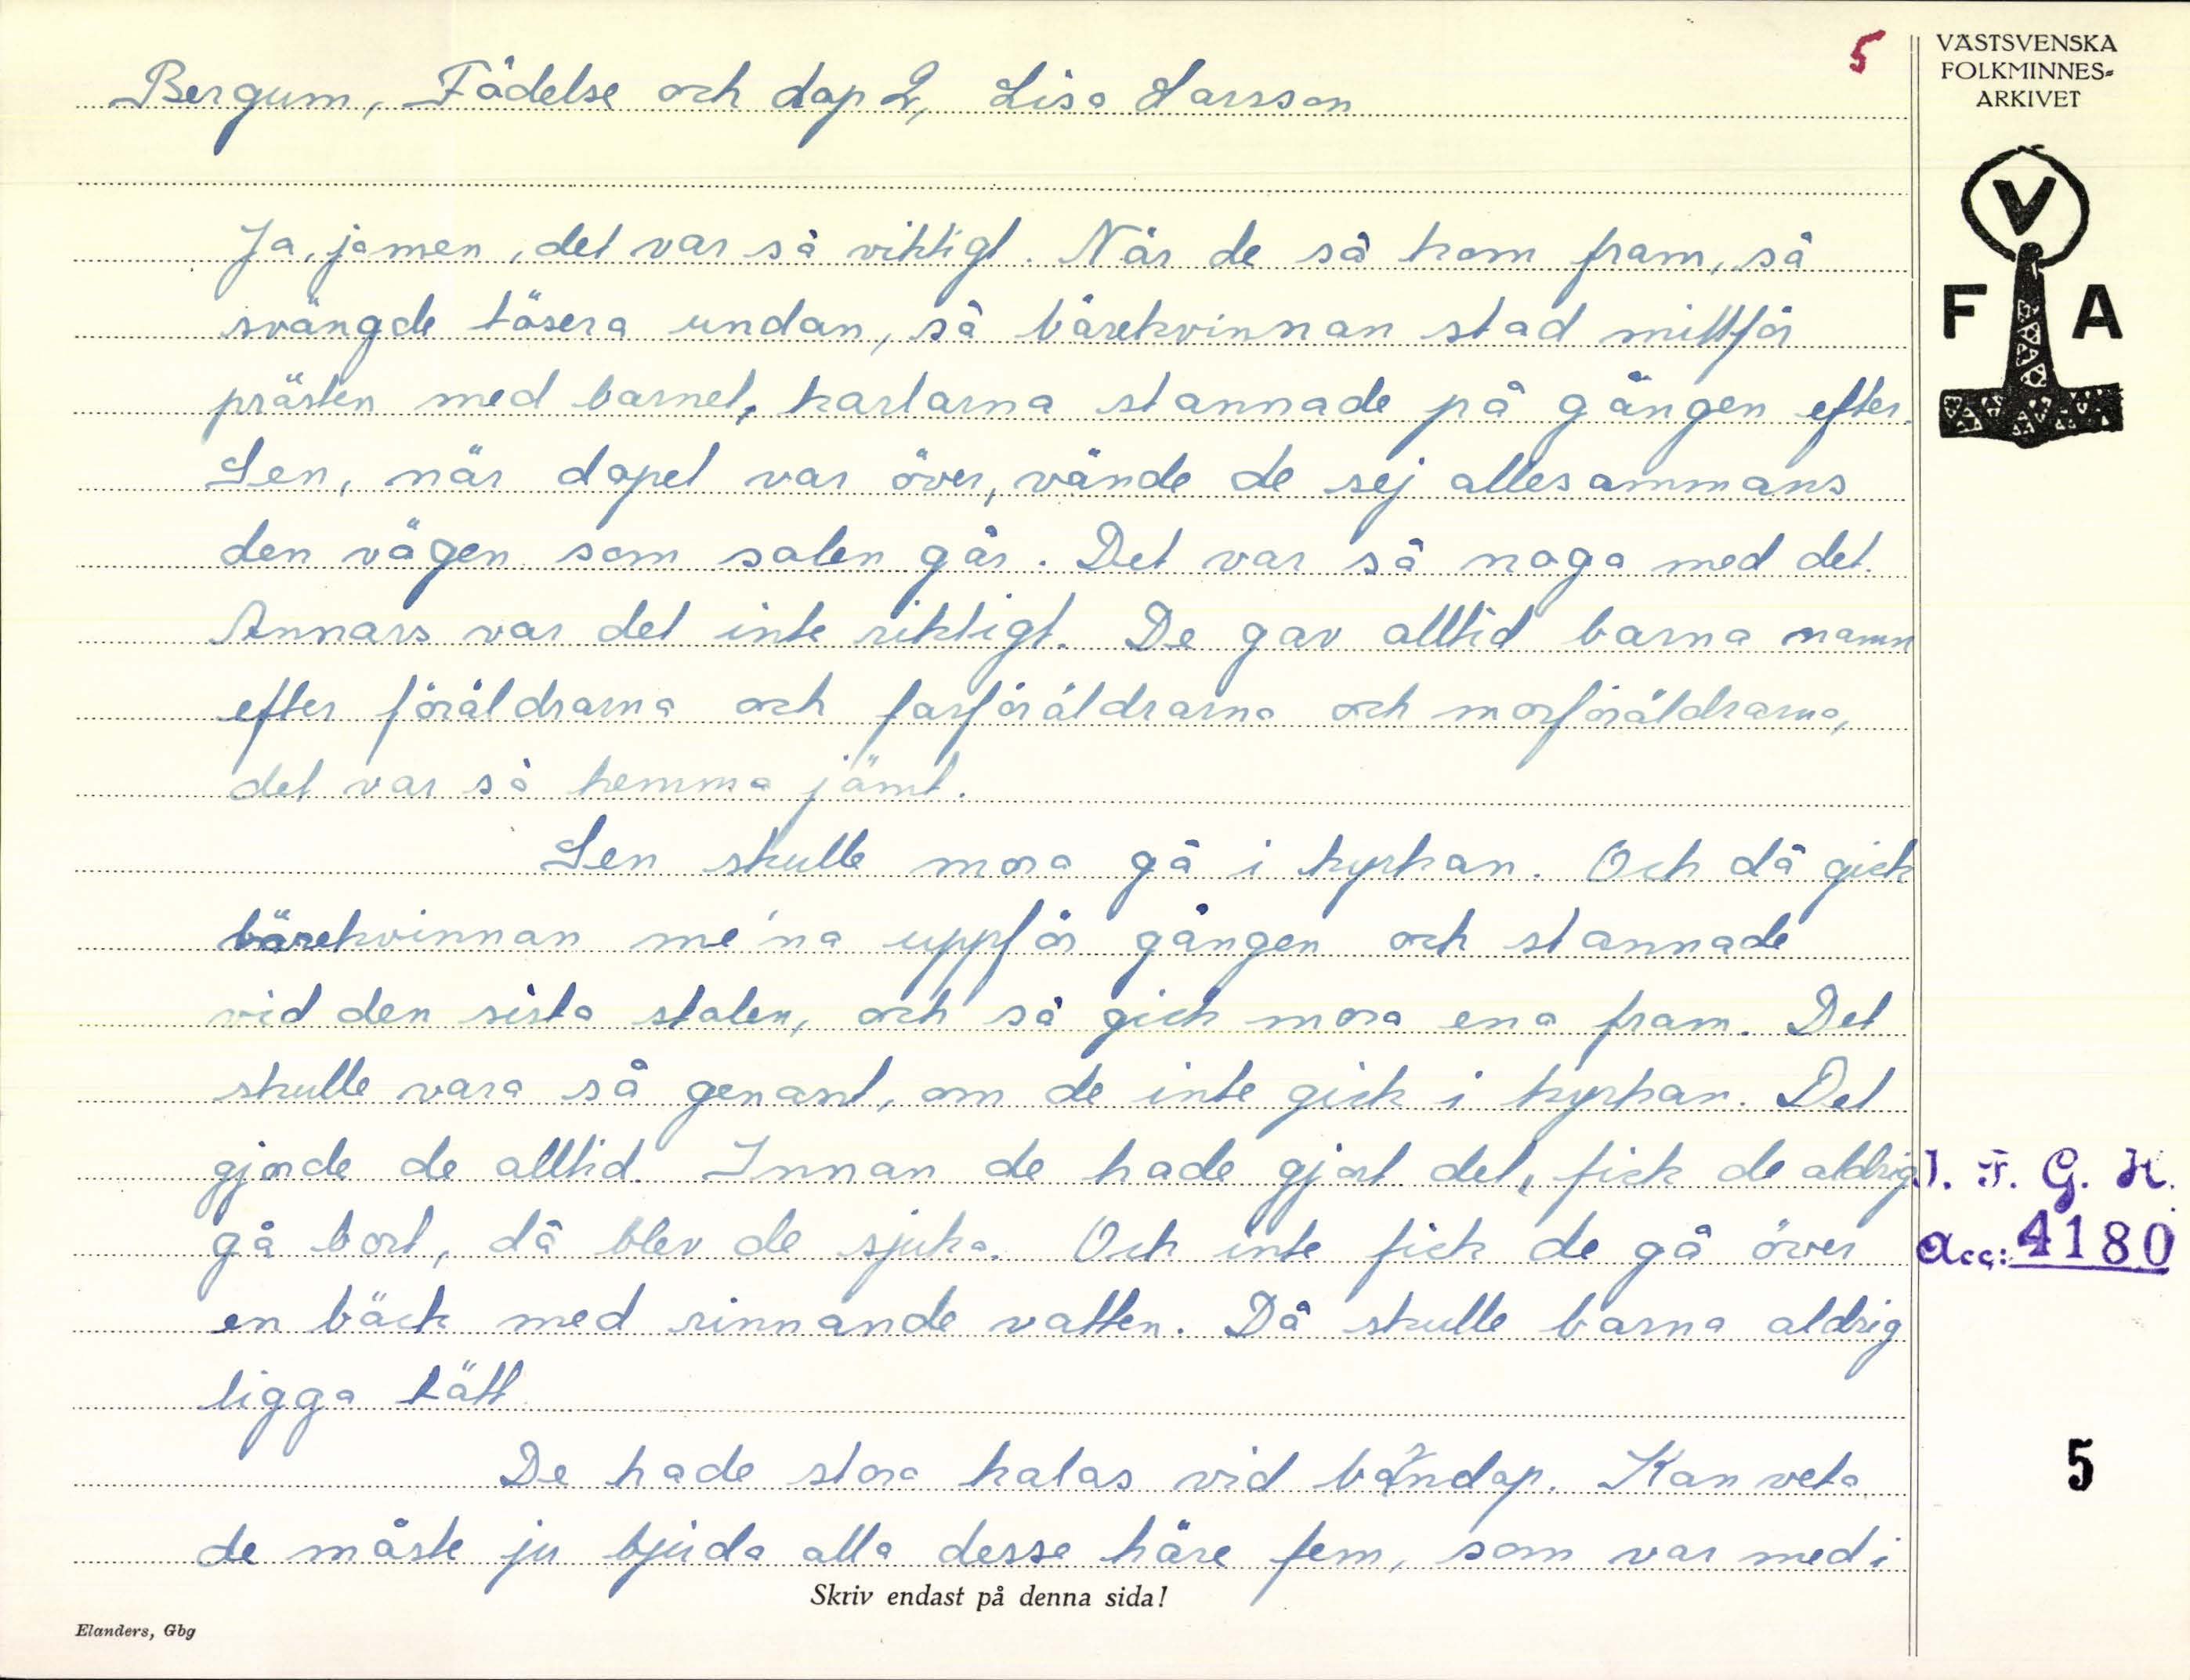 5
VÄSTSVENSKA
FOLKMINNES-
ARKIVET
V
F A
Bergum, Födelse och dop 2, Lisa Larsson
Ja, jamen, det var så viktigt. När de så kom fram, så
svängde tösera undan, så bärekvinnan stod mittför
prästen med barnet, karlarna stannade på gången efter.
Sen, när dopet var över, vände de sej allesammans
den vägen som solen går. Det var så noga med det.
Annars var det inte riktigt. De gav alltid barna namn
efter föräldrarna och farföräldrarna och morföräldrarna,
det var så hemma jämt.
Sen skulle mora gå i kyrkan. Och då gick
bärekvinnan me'na uppför gången och stannade
vid den sista stolen, och så gick mora ena fram. Det
skulle vara så genant, om de inte gick i kyrkan. Det
gjorde de alltid. Innan de hade gjort det, fick de aldrig
gå bort, då blev de sjuka. Och inte fick de gå över
en bäck med rinnande vatten. Då skulle barna aldrig
ligga tätt.
De hade stora kalas vid barndop. Kan veta
de måste ju bjuda alla desse häre fem, som var med i
I. F. G. H.
Acc: 4180
5
Skriv endast på denna sida!
Elanders, Gbg